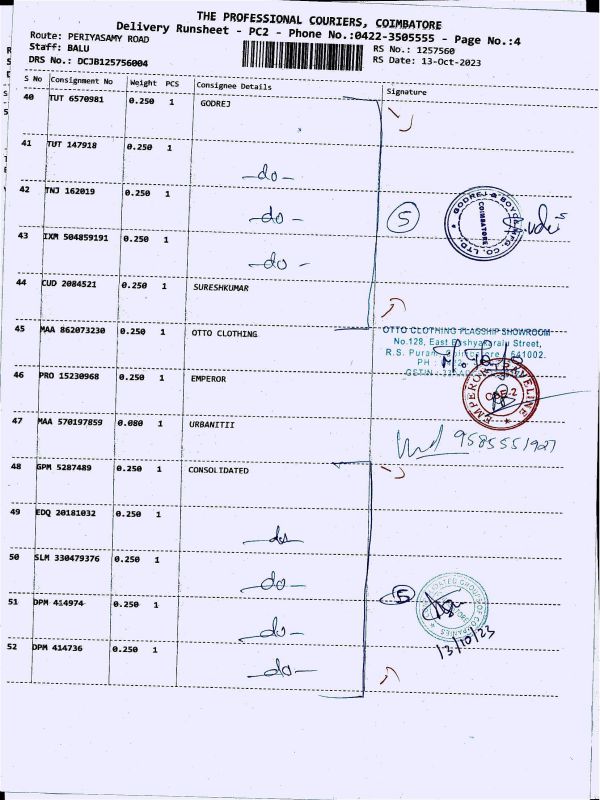 THE PROFESSIONAL COURIERS, COIMBATORE
Delivery Runsheet - PC2 - Phone No.:0422-3505555 - Page No.:4
Route: PERIYASAMY ROAD
Staff: BALU
RS No.: 1257560
DRS No.: DCJB125756004
RS Date: 13-Oct-2023
S No Consignment No Weight PCS Consignee Details Signature
40 TUT 6570981 0.250 1 GODREJ
41 TUT 147918 0.250 1 -do-
42 TNJ 162019 0.250 1 -do-
5
GODREJ & BOYCE MFG. CO. LTD.
COIMBATORE
43 IXM 504859191 0.250 1 -do-
44 CUD 2084521 0.250 1 SURESHKUMAR
45 MAA 862073230 0.250 1 OTTO CLOTHING
OTTO CLOTHING FLAGSHIP SHOWROOM
No.128, East Bashyakaralu Street,
R.S. Puram, Coimbatore - 641002.
46 PRO 15230968 0.250 1 EMPEROR
EMPEROR TRAVELINE
CBE-2
47 MAA 570197859 0.080 1 URBANITII
9585551927
48 GPM 5287489 0.250 1 CONSOLIDATED
49 EDQ 20181032 0.250 1 -do-
50 SLM 330479376 0.250 1 -do-
5
51 DPM 414974 0.250 1 -do-
13/10/23
52 DPM 414736 0.250 1 -do-